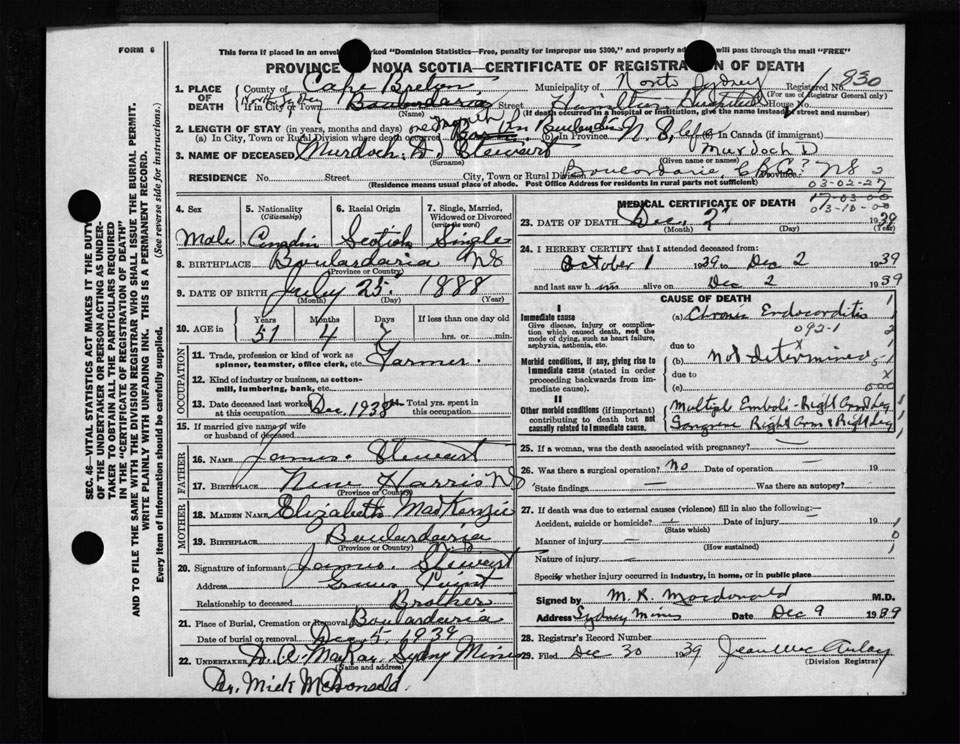 FORM 6
This form if placed in an envel ked "Dominion Statistics—Free, penalty for improper use $300," and properly ad will pass through the mail "FREE"
PROVINCE NOVA SCOTIA—CERTIFICATE OF REGISTRA N OF DEATH
1. PLACE OF DEATH
County of Cape Breton Municipality of North Sydney Registered No. 830
(For use of Registrar General only)
If in City, Town or Boulardaria Street Hamilton Hospital House No.
(Name) (If death occurred in a hospital or institution, give the name instead of street and number)
2. LENGTH OF STAY (in years, months and days) one month
(a) In City, Town or Rural Division where death occurred (b) in Province N.S. life (c) In Canada (if immigrant)
3. NAME OF DECEASED Murdoch. D. Stewart Murdoch D
(Surname) (Given name or names)
RESIDENCE No. Street City, Town or Rural Division Province NS
(Residence means usual place of abode. Post Office Address for residents in rural parts not sufficient)
03-02-27
17-03-00
03-10-00
4. Sex Male
5. Nationality (Citizenship)
6. Racial Origin Scotish
7. Single, Married, Widowed or Divorced (write the word) Single
8. BIRTHPLACE Boulardaria NS
(Province or Country)
9. DATE OF BIRTH July 25 1888
(Month) (Day) (Year)
10. AGE in Years Months Days If less than one day
51 4 7 hrs. or min.
OCCUPATION
11. Trade, profession or kind of work as spinner, teamster, office clerk, etc. Farmer.
12. Kind of industry or business, as cotton-mill, lumbering, bank, etc.
13. Date deceased last worked at this occupation Dec. 1938 Total yrs. spent in this occupation
15. If married give name of wife or husband of deceased
FATHER
16. Name James. Stewart
17. Birthplace Harris NS
(Province or Country)
MOTHER
18. Maiden Name Elizabeth MacKenzie
19. Birthplace Boulardaria
(Province or Country)
20. Signature of informant James. Stewart
Address Point
Relationship to deceased Brother
21. Place of Burial, Cremation or Removal Boulardaria
Date of burial or removal Dec 5. 1939
22. Undertaker D. A. MacKay. Sydney Mines
(Name and address)
Dr. Mick McDonald.
MEDICAL CERTIFICATE OF DEATH
23. DATE OF DEATH Dec 2 1939
(Month) (Day) (Year)
24. I HEREBY CERTIFY that I attended deceased from:
October 1 1939 to Dec 2 1939
and last saw h im alive on Dec 2 1939
CAUSE OF DEATH
I
Immediate cause
Give disease, injury or complication which caused death, not the mode of dying, such as heart failure, asphyxia, asthenia, etc.
(a) Chronic Endocarditis
092-1
due to
Morbid conditions, if any, giving rise to immediate cause (stated in order proceeding backwards from immediate cause).
(b) Not determined
due to
(c)
000
II
Other morbid conditions (if important) contributing to death but not causally related to immediate cause.
Multiple Emboli - Right Arm & Leg
Gangrene Right Arm & Right Leg
25. If a woman, was the death associated with pregnancy?
26. Was there a surgical operation? No Date of operation 19
State findings Was there an autopsy?
27. If death was due to external causes (violence) fill in also the following:—
Accident, suicide or homicide? Date of injury 19
(State which)
Manner of injury
(How sustained)
Nature of injury
Specify whether injury occurred in industry, in home, or in public place
Signed by M. R. Macdonald M.D.
Address Sydney Mines Date Dec 9 1939
28. Registrar's Record Number
29. Filed Dec 30 1939 Jean MacAulay
(Division Registrar)
SEC. 46—VITAL STATISTICS ACT MAKES IT THE DUTY
OF THE UNDERTAKER OR PERSON ACTING AS UNDER-
TAKER TO OBTAIN ALL THE PARTICULARS REQUIRED
IN THE "CERTIFICATE OF REGISTRATION OF DEATH"
AND TO FILE THE SAME WITH THE DIVISION REGISTRAR WHO SHALL ISSUE THE BURIAL PERMIT.
WRITE PLAINLY WITH UNFADING INK. THIS IS A PERMANENT RECORD.
Every item of Information should be carefully supplied. (See reverse side for instructions.)